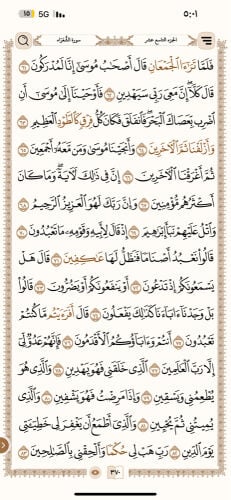 ٥:٠١ 5G 15
الجزء التاسع عشر سورة الشُّعَرَاء
فَلَمَّا تَرَٰٓءَا ٱلْجَمْعَانِ قَالَ أَصْحَٰبُ مُوسَىٰٓ إِنَّا لَمُدْرَكُونَ ٦١
قَالَ كَلَّآ إِنَّ مَعِىَ رَبِّى سَيَهْدِينِ ٦٢ فَأَوْحَيْنَآ إِلَىٰ مُوسَىٰٓ أَنِ
ٱضْرِب بِّعَصَاكَ ٱلْبَحْرَ فَٱنفَلَقَ فَكَانَ كُلُّ فِرْقٍ كَٱلطَّوْدِ ٱلْعَظِيمِ ٦٣
وَأَزْلَفْنَا ثَمَّ ٱلْءَاخَرِينَ ٦٤ وَأَنجَيْنَا مُوسَىٰ وَمَن مَّعَهُۥٓ أَجْمَعِينَ ٦٥
ثُمَّ أَغْرَقْنَا ٱلْءَاخَرِينَ ٦٦ إِنَّ فِى ذَٰلِكَ لَءَايَةً وَمَا كَانَ
أَكْثَرُهُم مُّؤْمِنِينَ ٦٧ وَإِنَّ رَبَّكَ لَهُوَ ٱلْعَزِيزُ ٱلرَّحِيمُ ٦٨
وَٱتْلُ عَلَيْهِمْ نَبَأَ إِبْرَٰهِيمَ ٦٩ إِذْ قَالَ لِأَبِيهِ وَقَوْمِهِۦ مَا تَعْبُدُونَ ٧٠
قَالُوا۟ نَعْبُدُ أَصْنَامًا فَنَظَلُّ لَهَا عَٰكِفِينَ ٧١ قَالَ هَلْ
يَسْمَعُونَكُمْ إِذْ تَدْعُونَ ٧٢ أَوْ يَنفَعُونَكُمْ أَوْ يَضُرُّونَ ٧٣ قَالُوا۟
بَلْ وَجَدْنَآ ءَابَآءَنَا كَذَٰلِكَ يَفْعَلُونَ ٧٤ قَالَ أَفَرَءَيْتُم مَّا كُنتُمْ
تَعْبُدُونَ ٧٥ أَنتُمْ وَءَابَآؤُكُمُ ٱلْأَقْدَمُونَ ٧٦ فَإِنَّهُمْ عَدُوٌّ لِّىٓ
إِلَّا رَبَّ ٱلْعَٰلَمِينَ ٧٧ ٱلَّذِى خَلَقَنِى فَهُوَ يَهْدِينِ ٧٨ وَٱلَّذِى هُوَ
يُطْعِمُنِى وَيَسْقِينِ ٧٩ وَإِذَا مَرِضْتُ فَهُوَ يَشْفِينِ ٨٠ وَٱلَّذِى
يُمِيتُنِى ثُمَّ يُحْيِينِ ٨١ وَٱلَّذِىٓ أَطْمَعُ أَن يَغْفِرَ لِى خَطِيٓـَٔتِى
يَوْمَ ٱلدِّينِ ٨٢ رَبِّ هَبْ لِى حُكْمًا وَأَلْحِقْنِى بِٱلصَّٰلِحِينَ ٨٣
٣٧٠